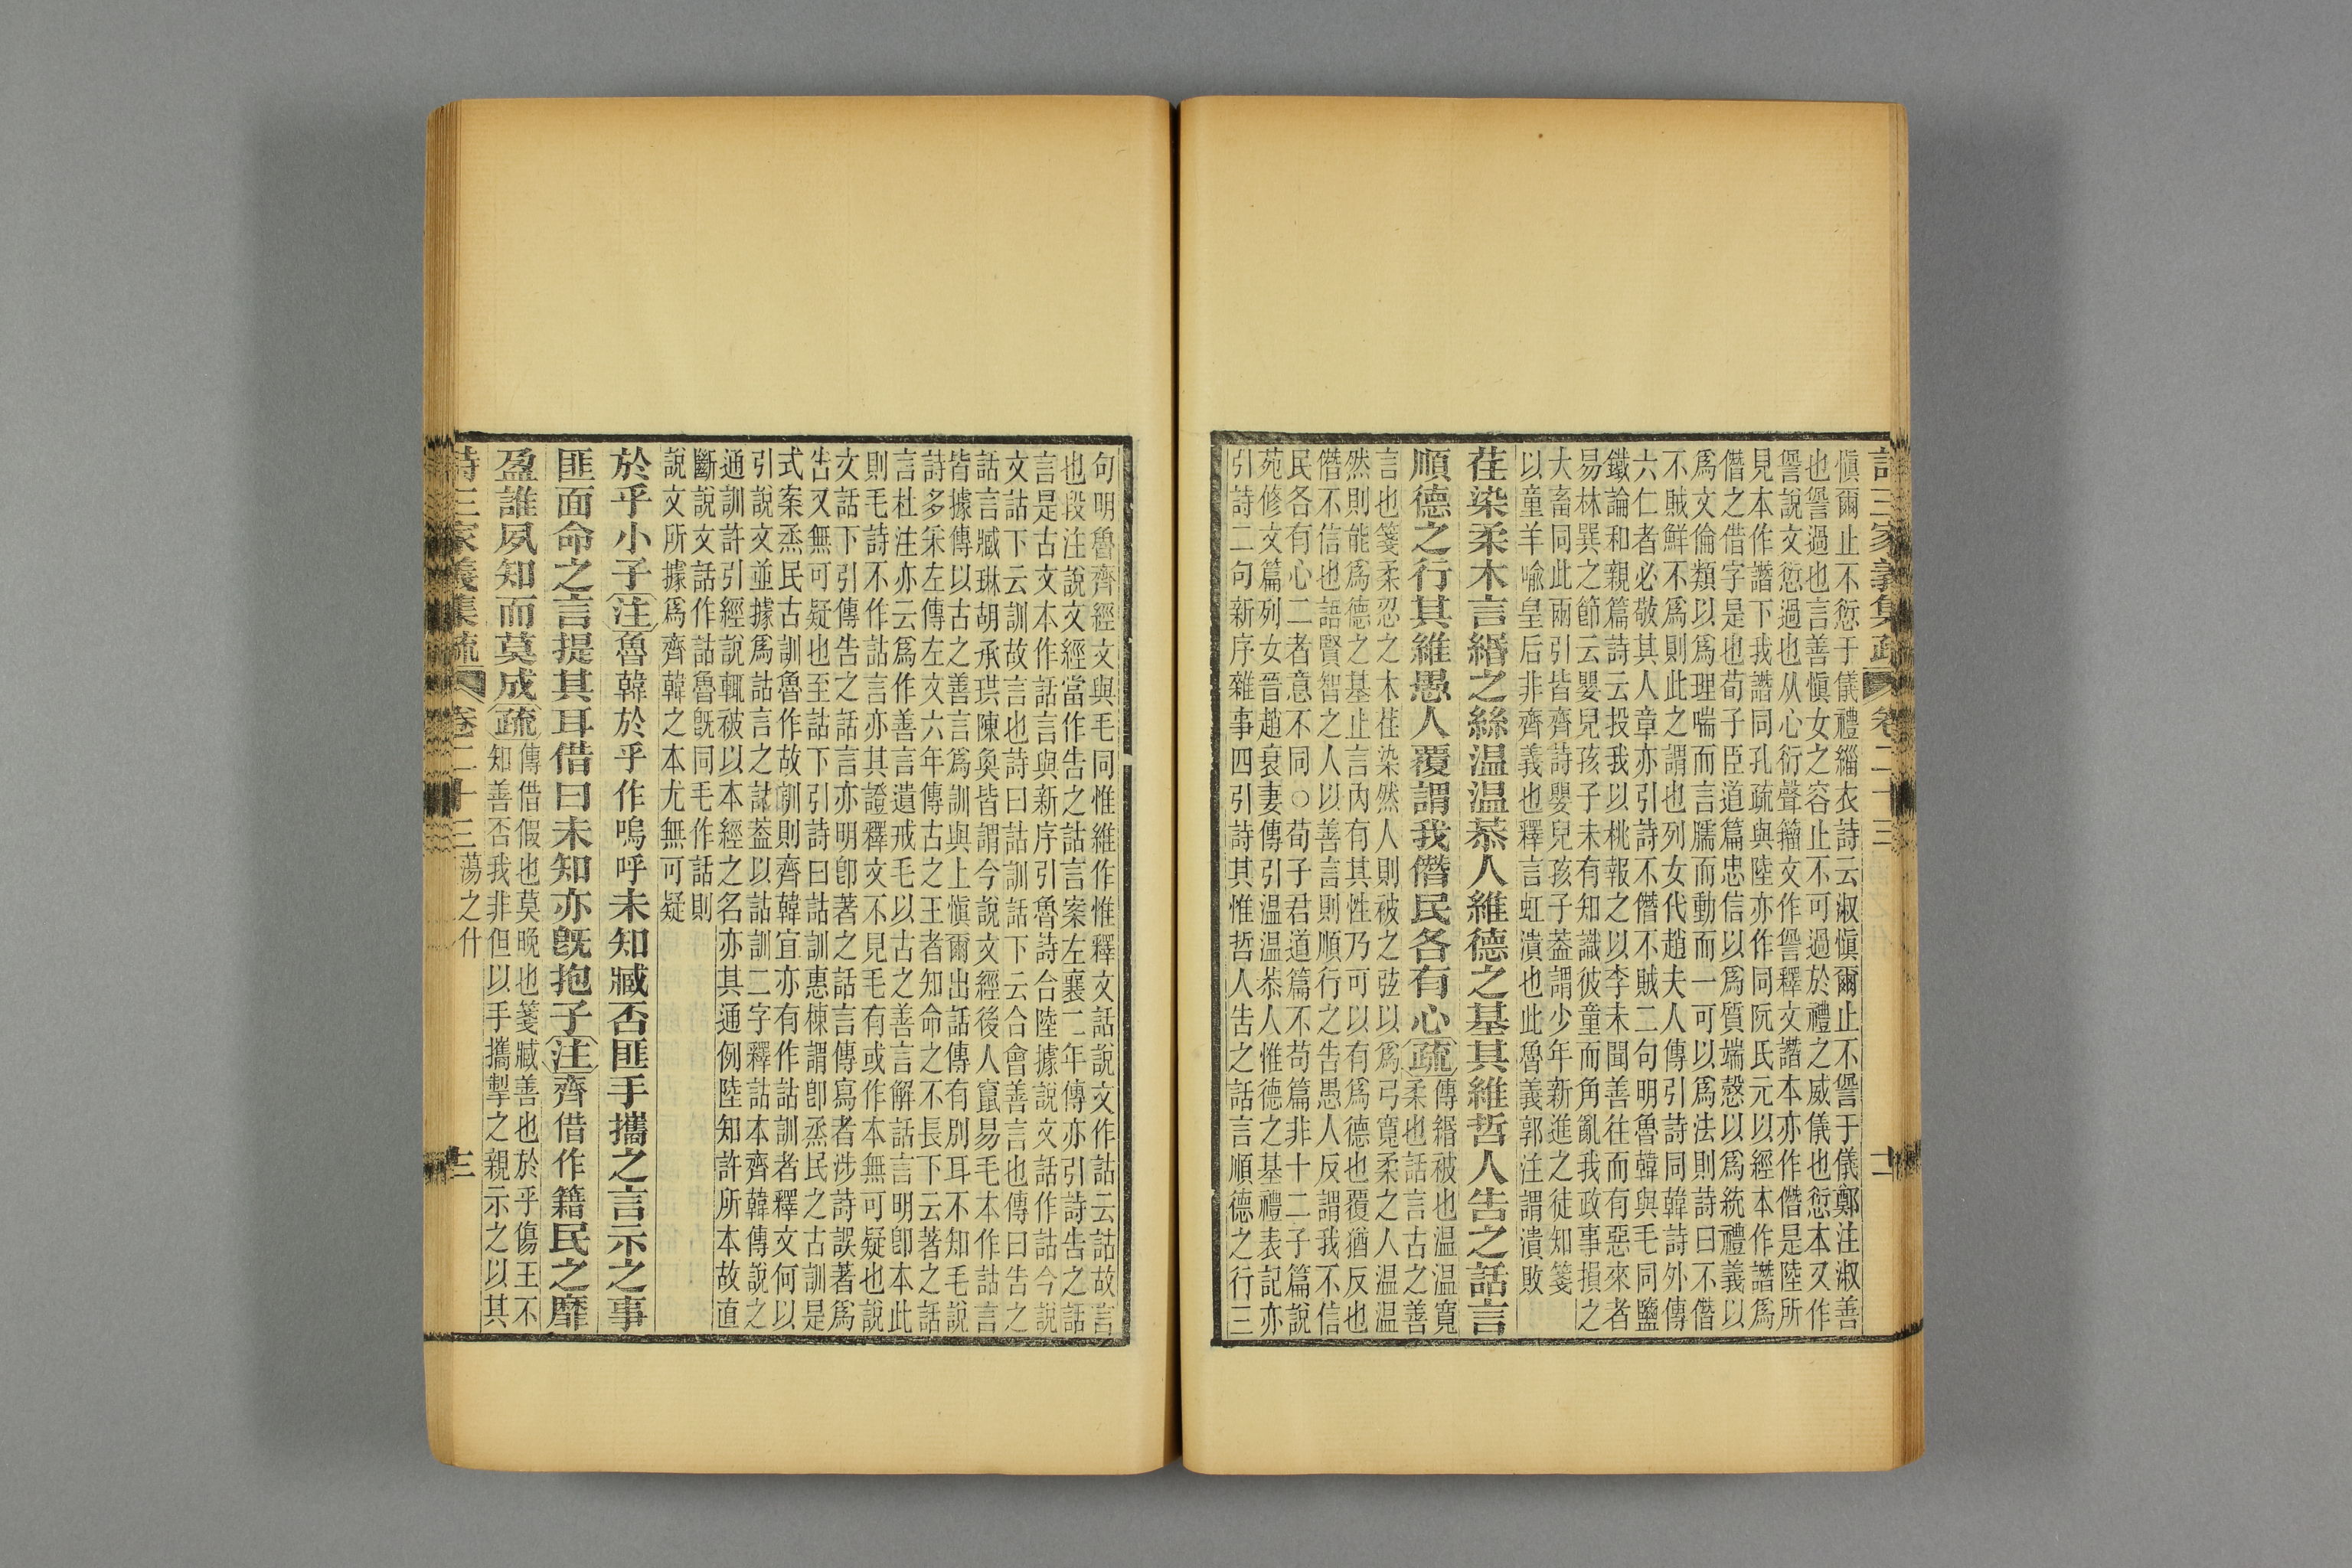 詩三家義集疏 卷二十三 十二
愼爾止不愆于儀禮緇衣詩云淑愼爾止不諐于儀鄭注淑善
也諐過也言善愼女之容止不可過於禮之威儀也愆本又作
諐說文愆過也从心衍聲籀文作諐釋文譖本亦作僭是陸所
見本作譖下我譖同孔疏與陸亦作同阮氏元以經本作譖爲
僭之借字是也荀子臣道篇忠信以爲質端慤以爲統禮義以
爲文倫類以爲理喘而言臑而動而一可以爲法則詩曰不僭
不賊鮮不爲則此之謂也列女代趙夫人傳引詩同韓詩外傳
六仁者必敬其人章亦引詩不僭不賊二句明魯韓與毛同鹽
鐵論和親篇詩云投我以桃報之以李未聞善往而有惡來者
易林巽之節云嬰兒孩子未有知識彼童而角亂我政事損之
大畜同此兩引皆齊詩嬰兒孩子葢謂少年新進之徒知箋
以童羊喻皇后非齊義也釋言虹潰也此魯義郭注謂潰敗
荏染柔木言緡之絲温温恭人維德之基其維哲人告之話言
順德之行其維愚人覆謂我僭民各有心疏傳緡被也温温寬
柔也話言古之善
言也箋柔忍之木荏染然人則被之弦以爲弓寬柔之人温温
然則能爲德之基止言內有其性乃可以有爲德也覆猶反也
僭不信也語賢智之人以善言則順行之告愚人反謂我不信
民各有心二者意不同○荀子君道篇不苟篇非十二子篇說
苑修文篇列女晉趙衰妻傳引温温恭人惟德之基禮表記亦
引詩二句新序雜事四引詩其惟哲人告之話言順德之行三
句明魯齊經文與毛同惟維作惟釋文話說文作詁云詁故言
也段注說文經當作告之詁言案左襄二年傳亦引詩告之話
言是古文本作話言與新序引魯詩合陸據說文話作詁今說
文詁下云訓故言也詩曰詁訓話下云合會善言也傳曰告之
話言臧琳胡承珙陳奐皆謂今說文經後人竄易毛本作詁言
皆據傳以古之善言爲訓與上愼爾出話傳有別耳不知毛說
詩多采左傳左文六年傳古之王者知命之不長下云著之話
言杜注亦云爲作善言遺戒毛以古之善言解話言明卽本此
則毛詩不作詁言亦其證釋文不見毛有或作本無可疑也說
文話下引傳告之話言亦明卽著之話言傳寫者涉詩誤著爲
告又無可疑也至詁下引詩曰詁訓惠棟謂卽烝民之古訓是
式案烝民古訓魯作故訓則齊韓宜亦有作詁訓者釋文何以
引說文並據爲詁言之訛葢以詁訓二字釋詁本齊韓傳說之
通訓許引經說輒被以本經之名亦其通例陸知許所本故直
斷說文話作詁魯旣同毛作話則
說文所據爲齊韓之本尤無可疑
於乎小子注魯韓於乎作嗚呼未知臧否匪手攜之言示之事
匪面命之言提其耳借曰未知亦旣抱子注齊借作籍民之靡
盈誰夙知而莫成疏傳借假也莫晚也箋臧善也於乎傷王不
知善否我非但以手攜掣之親示之以其
詩三家義集疏 卷二十三 蕩之什 十三